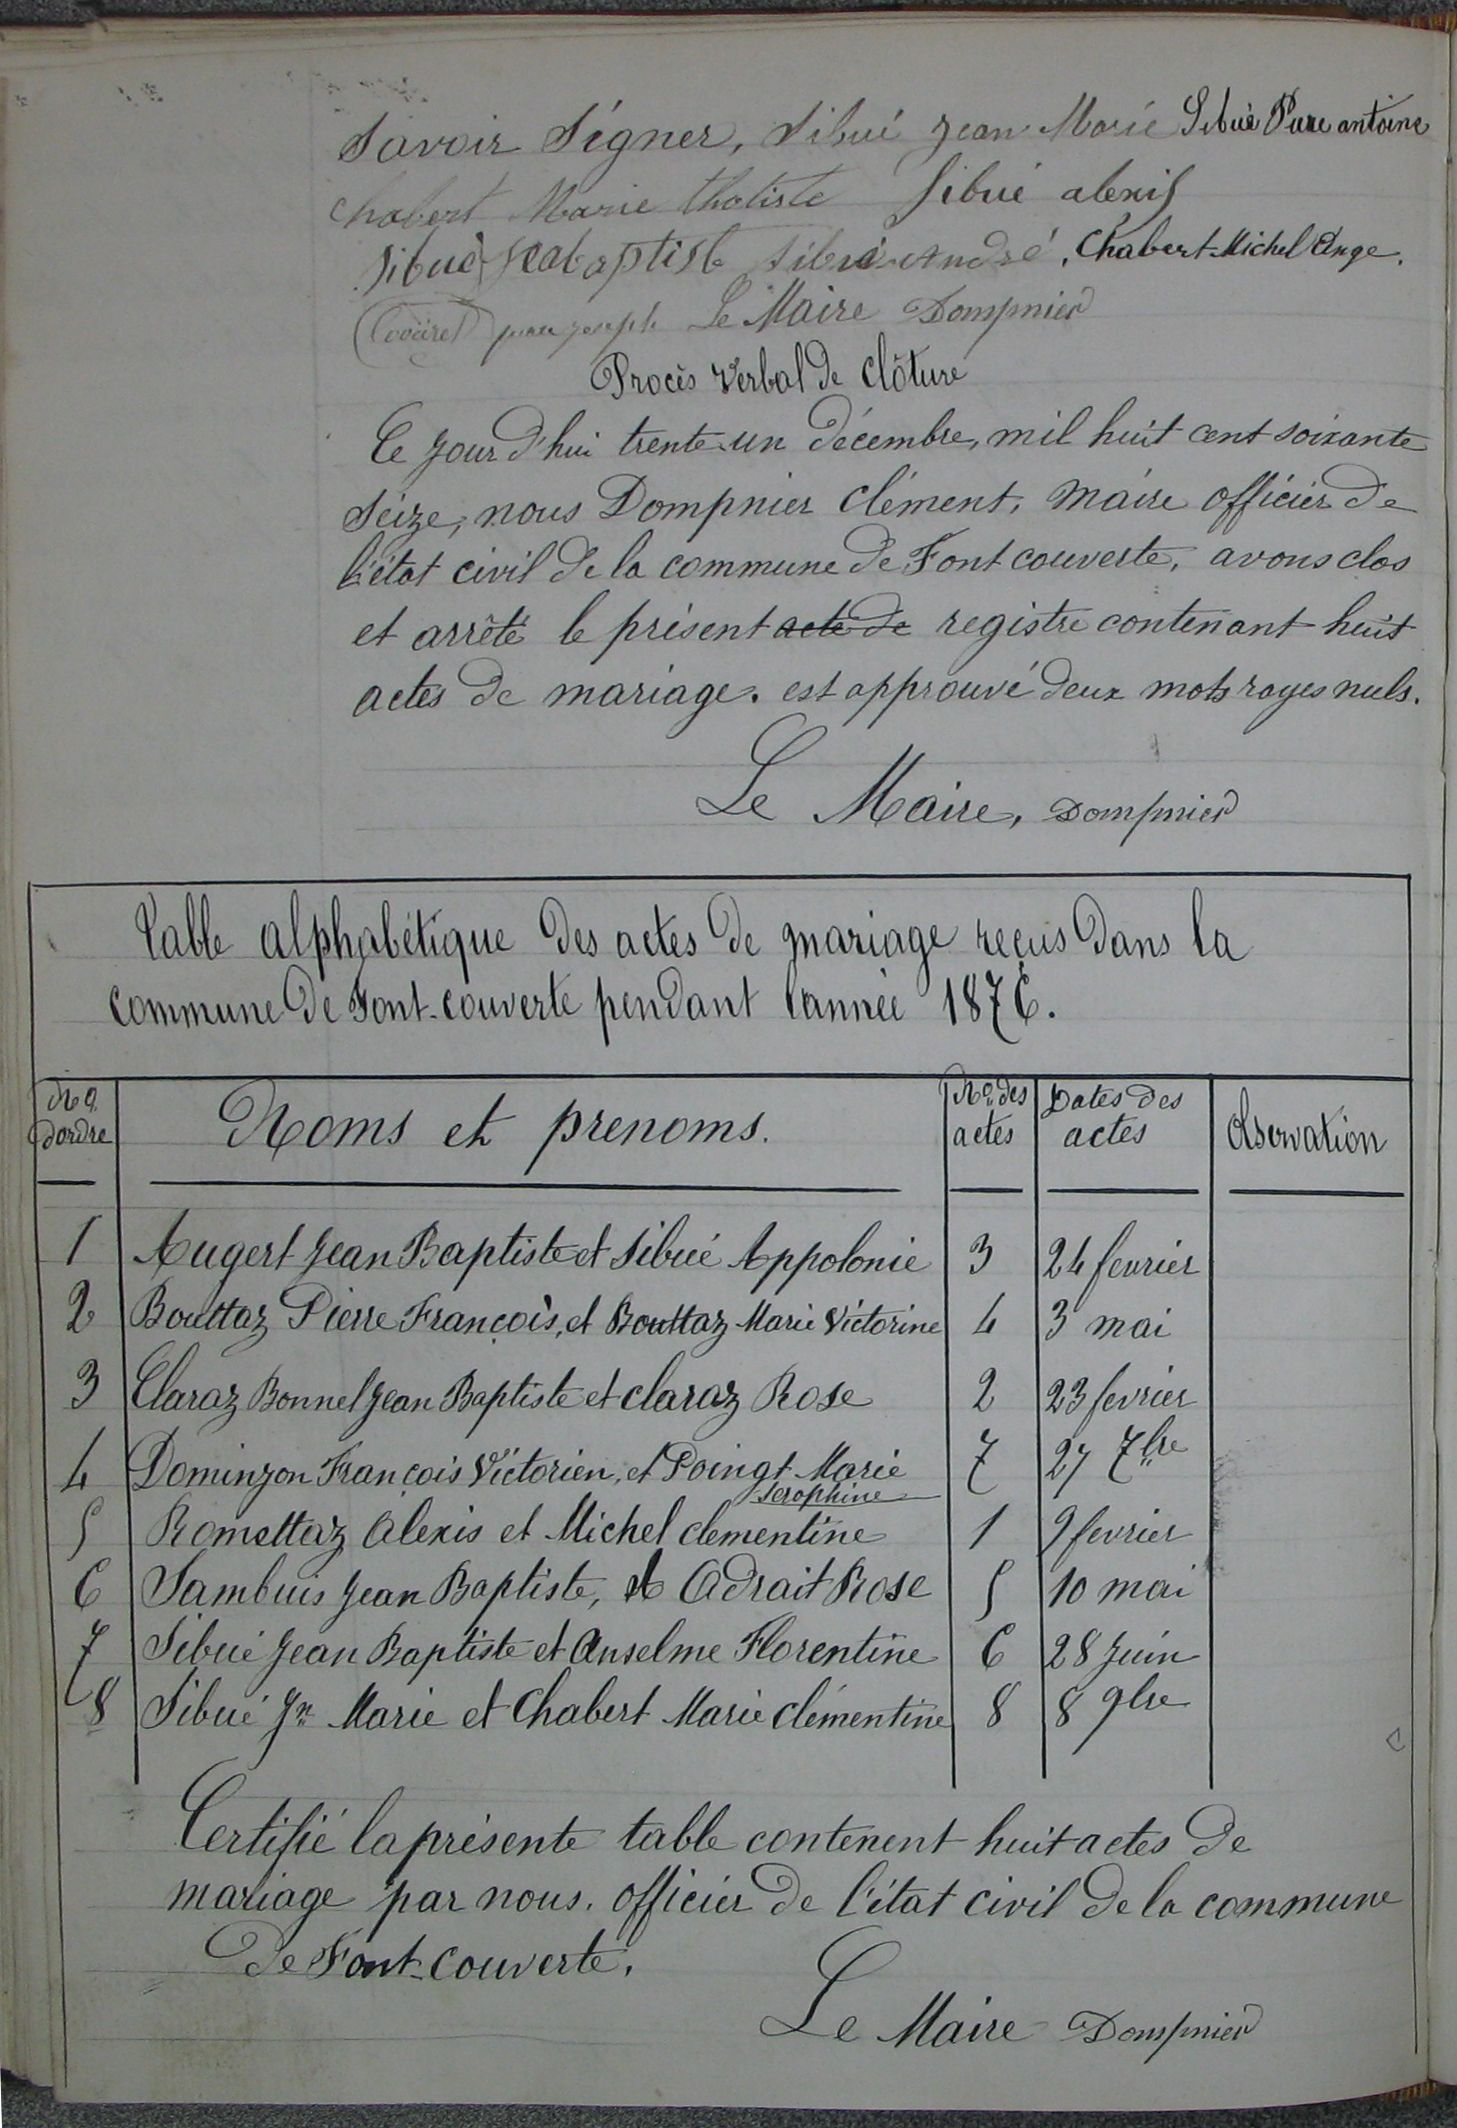 Savoir Signer, Sibué Jean Marie Sibué Pierre antoine
Chabert Marie Sibué alexis
Sibué Jeabaptiste Sibué André, Chabert Michel Ange.
joseph Le Maire Dompnier
Procès Verbal de Clôture
Ce Jour d'hui trente un décembre, mil huit cent soixante
Seize, nous Dompnier Clément, Maire officier de
l'état civil de la commune de Font couverte, avons clos
et arrêté le présent acte de registre contenant huit
actes de mariage. est approuvé deux mots rayes nuls.
Le Maire, Dompnier
Table alphabétique des actes de mariage reçus dans la
commune de Font-couverte pendant l'année 1876.
No d'ordre Noms et prenoms. No des actes Dates des actes Obsservation
1 Augert Jean Baptiste et Sibué Appolonie 3 24 fevrier
2 Bouttaz Pierre François, et Bouttaz Marie Victorine 4 3 mai
3 Claraz Bonnel Jean Baptiste et Claraz Rose 2 23 fevrier
4 Dominjon François Victorien, et Poingt Marie 7 27 7bre
Serophine
5 Romettaz Alexis et Michel clementine 1 9 fevrier
6 Sambuis Jean Baptiste, et Adrait Rose 5 10 mai
7 Sibué Jean Baptiste et Anselme Florentine 6 28 Juin
8 Sibué Jn Marie et Chabert Marie clémentine 8 8 9bre
Certifié la présente table contenent huit actes de
mariage par nous. officier de l'état civil de la commune
de Font-couverte.
Le Maire Dompnier